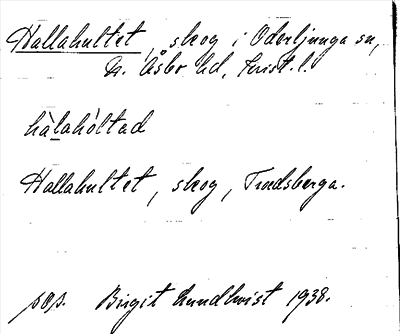 Hallahultet, skog i Oderljunga sn,
N. Åsbo hd, Krist. l.
hàlahòltad
Hallahultet, skog, Troedsberga.
pop. Birgit Lundkvist 1938.